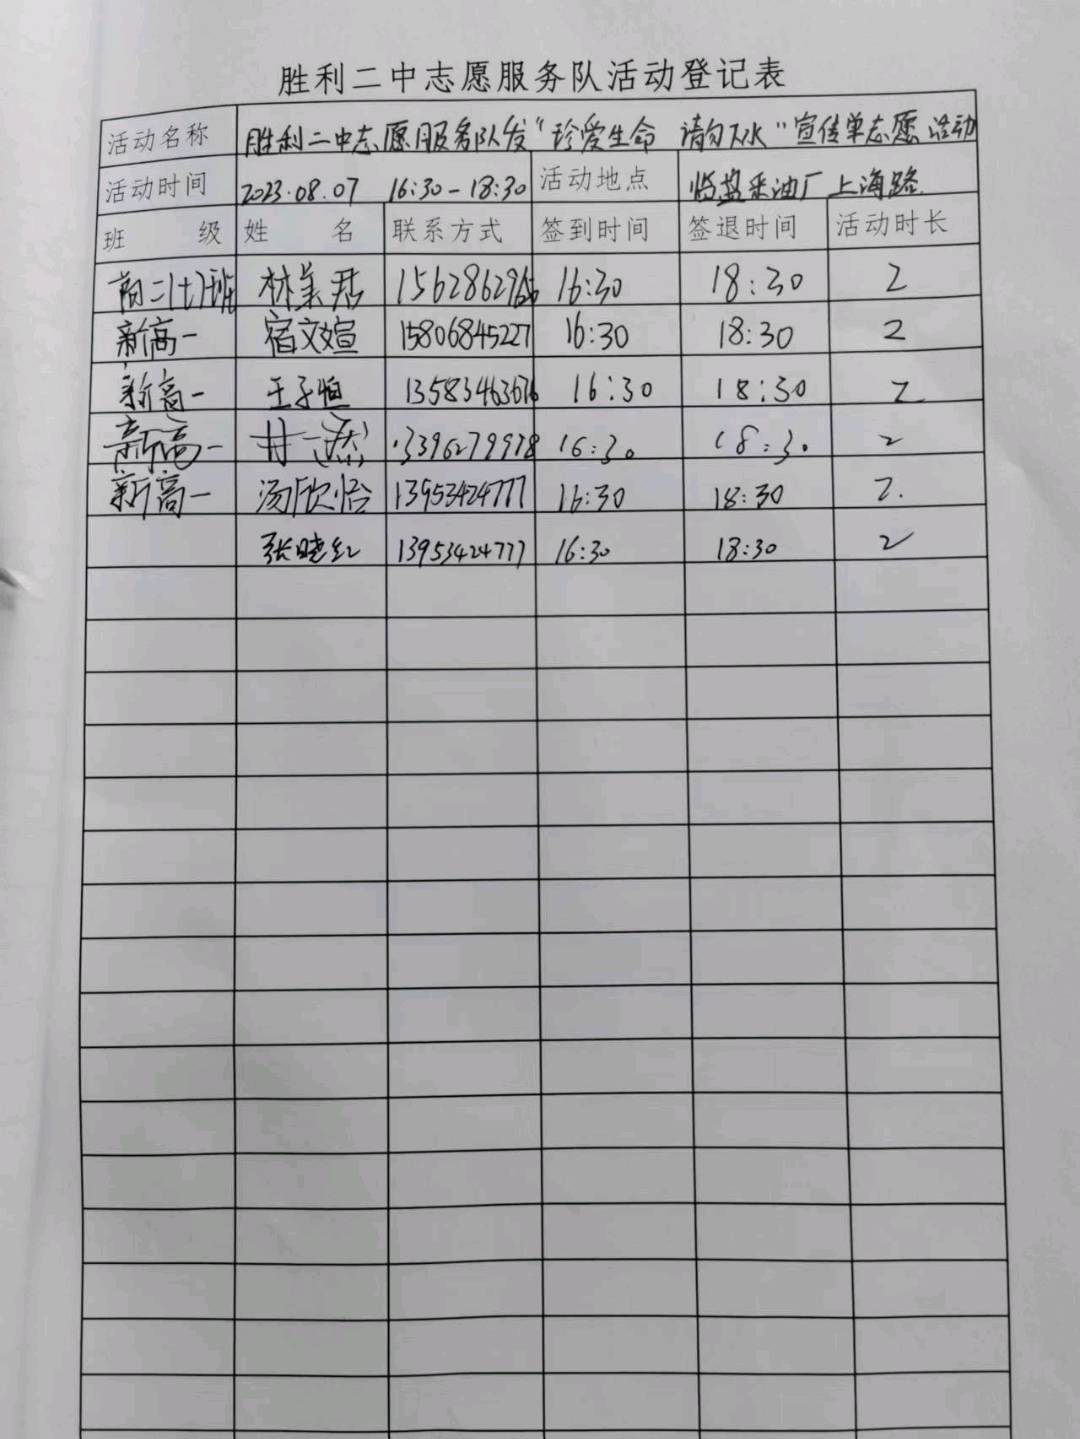 胜利二中志愿服务队活动登记表
活动名称 胜利二中志愿服务队发“珍爱生命 请勿下水”宣传单志愿活动
活动时间 2023.08.07 16:30-18:30 活动地点 临盘采油厂上海路
班 级 姓 名 联系方式 签到时间 签退时间 活动时长
高二(七)班 林美君 16:30 18:30 2
新高一 宿文媗 15806845227 16:30 18:30 2
新高一 王子恒 13583463676 16:30 18:30 2
新高一 16:30 18:30 2
新高一 汤欣怡 13953424777 16:30 18:30 2.
张晓红 13953424777 16:30 18:30 2